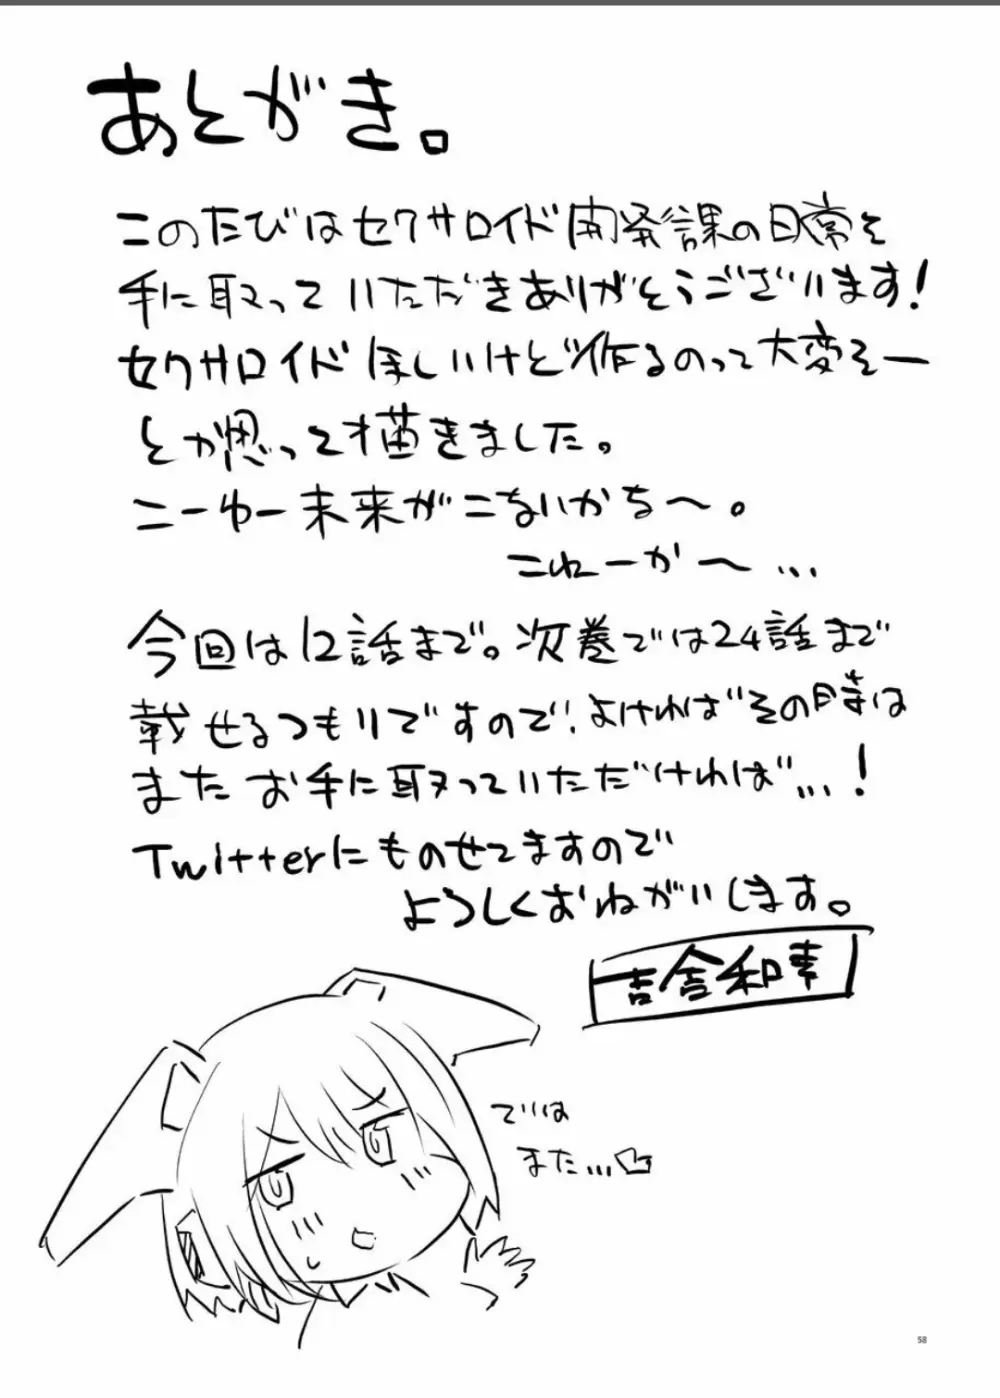 あとがき。
このたびはセクサロイド開発課の日常を
手に取っていただきありがとうございます！
セクサロイドほしいけど作るのって大変そー
とか思って描きました。
こーゆー未来がこないかな〜。
これーが〜...
今回は12話まで。次巻では24話まで
載せるつもりですので！よければその時は
またお手に取っていただければ...！
Twitterにものせてますので
よろしくおねがいします。
吉舎和幸
では
また...
58